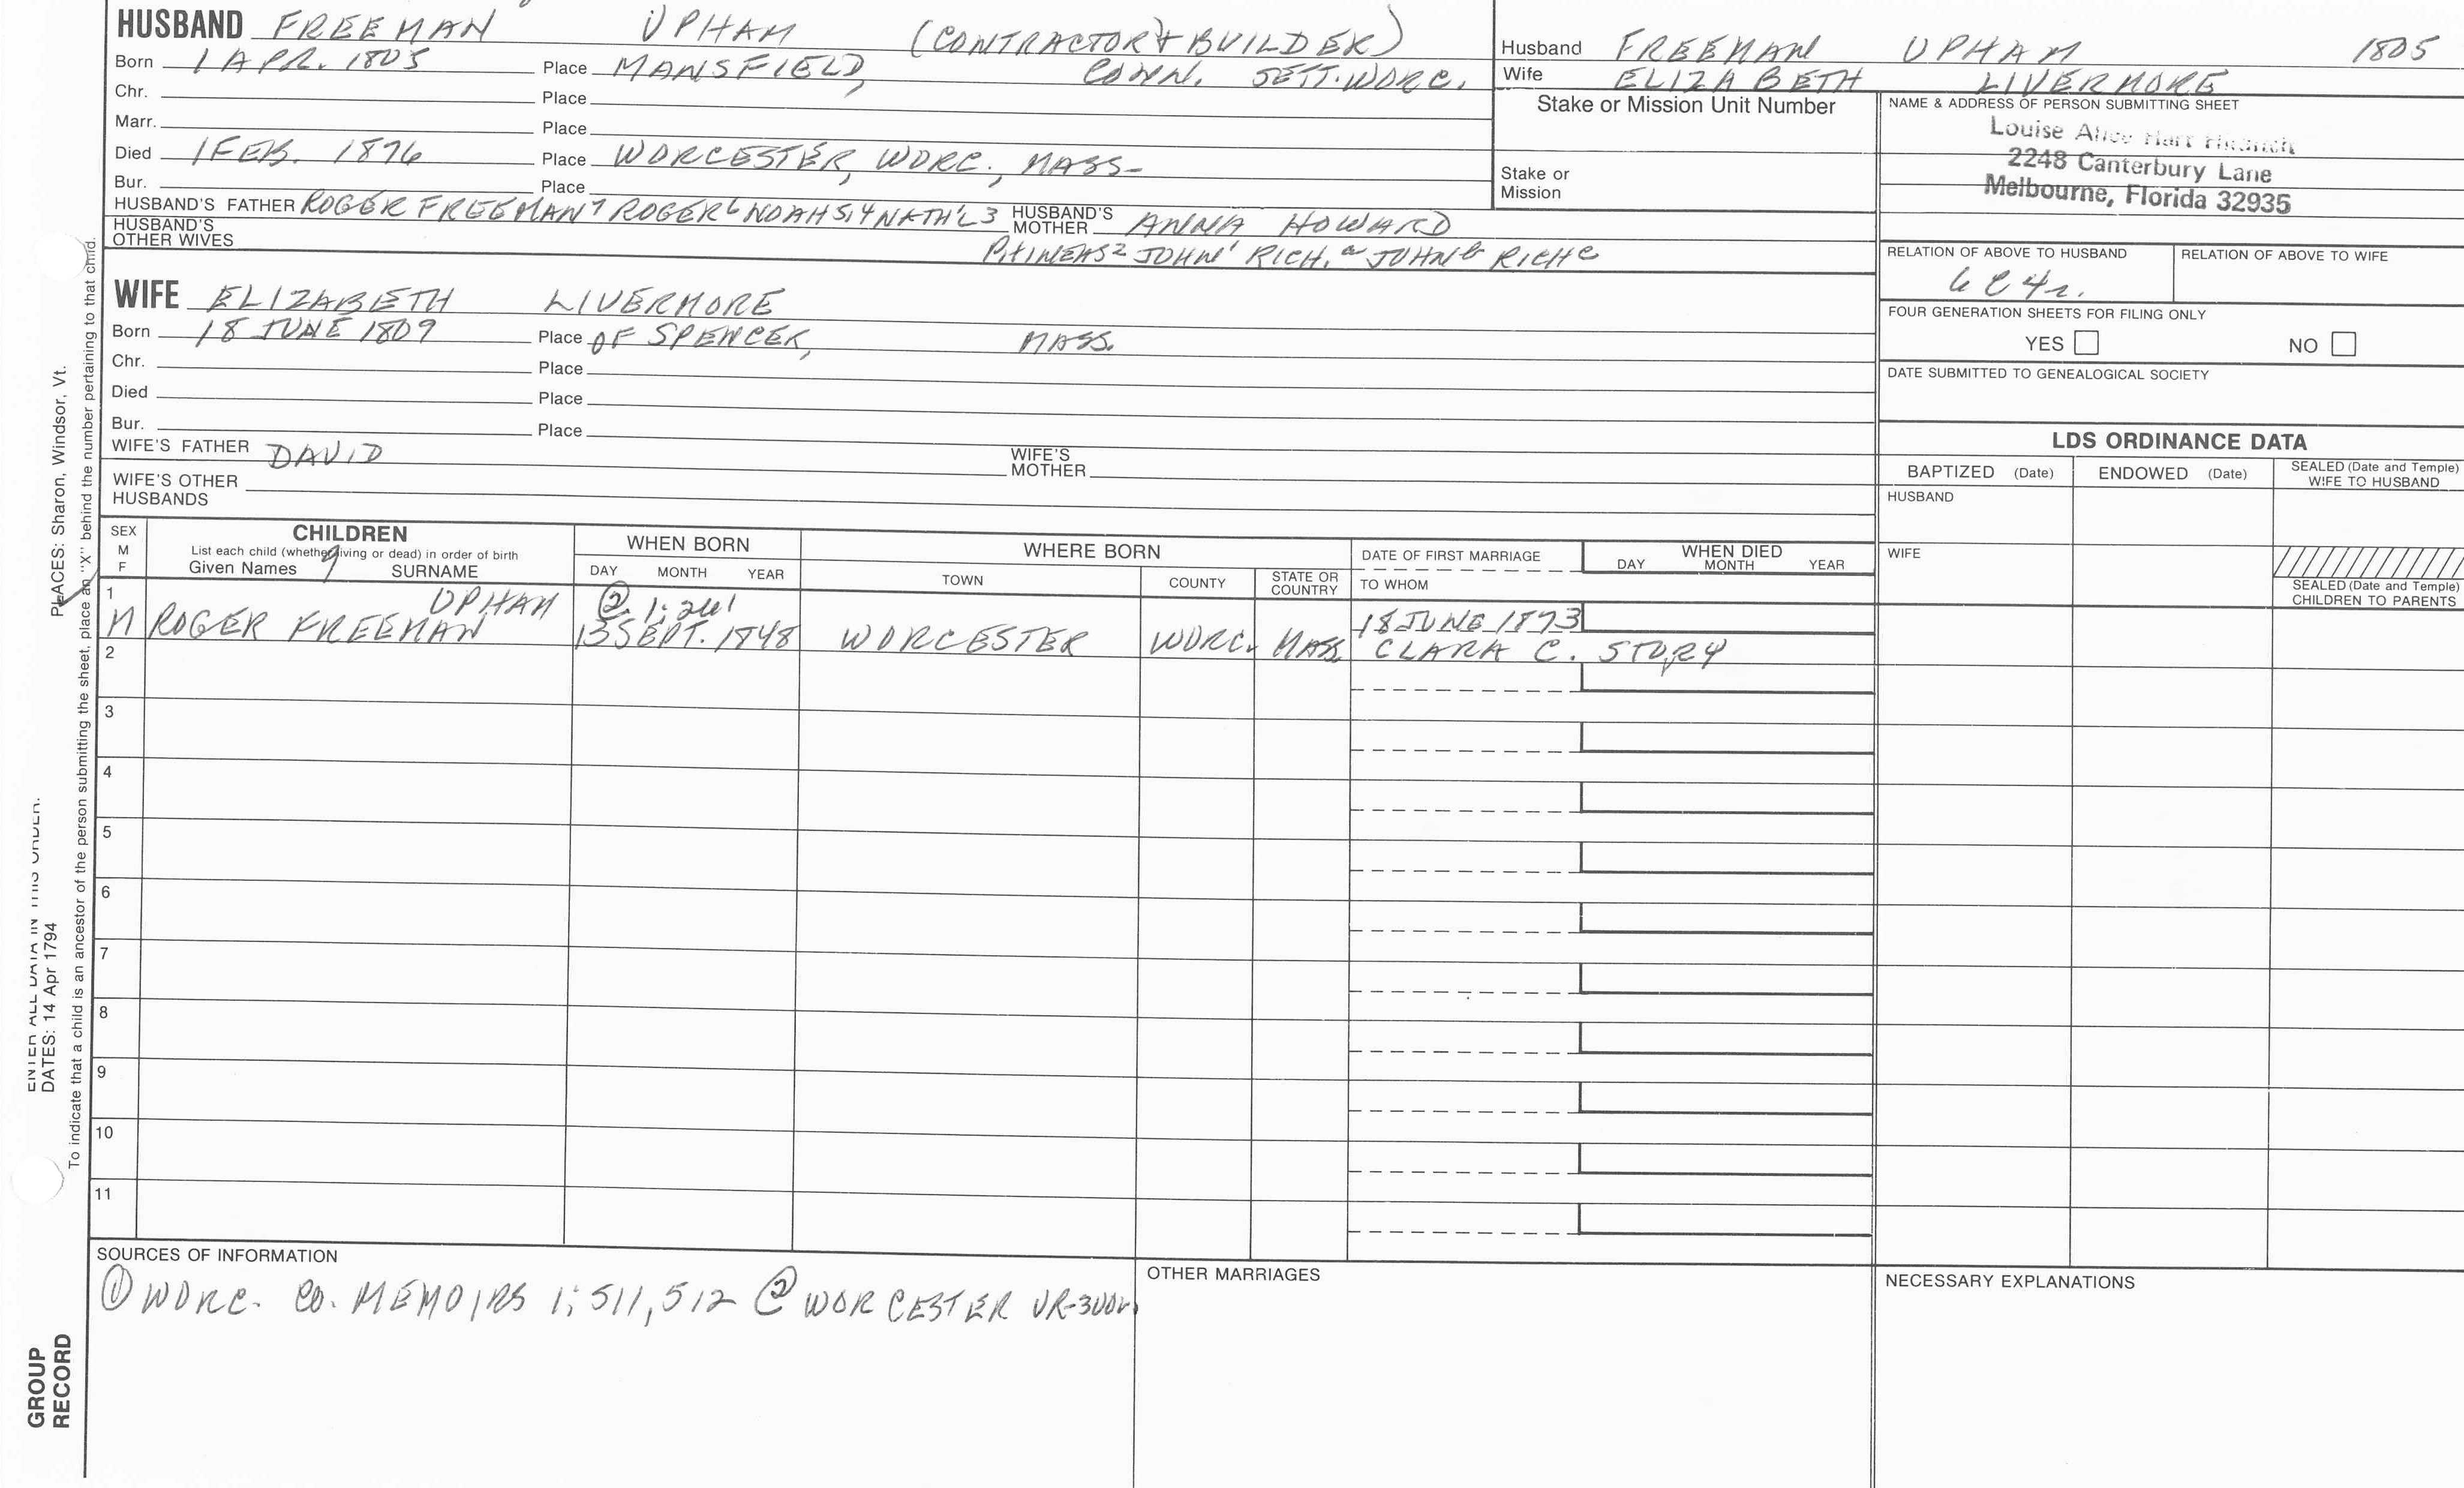 HUSBAND FREEMAN UPHAM (CONTRACTOR & BUILDER)
Born 1 APR. 1805 Place MANSFIELD, CONN. SETT. WORC.
Chr. Place
Marr. Place
Died 1 FEB. 1876 Place WORCESTER, WORC., MASS-
Bur. Place
HUSBAND'S FATHER ROGER FREEMAN7 ROGER6 NOAH5,4 NATH'L3 HUSBAND'S MOTHER ANNA HOWARD
HUSBAND'S OTHER WIVES
PHINEAS2 JOHN1 RICH.a JOHNb RICHc
WIFE ELIZABETH LIVERMORE
Born 18 JUNE 1809 Place OF SPENCER, MASS.
Chr. Place
Died Place
Bur. Place
WIFE'S FATHER DAVID WIFE'S MOTHER
WIFE'S OTHER HUSBANDS
Husband FREEMAN UPHAM 1805
Wife ELIZABETH LIVERMORE
Stake or Mission Unit Number
Stake or Mission
NAME & ADDRESS OF PERSON SUBMITTING SHEET
Louise Alice Hart
2248 Canterbury Lane
Melbourne, Florida 32935
RELATION OF ABOVE TO HUSBAND RELATION OF ABOVE TO WIFE
6C4r.
FOUR GENERATION SHEETS FOR FILING ONLY
YES NO
DATE SUBMITTED TO GENEALOGICAL SOCIETY
LDS ORDINANCE DATA
BAPTIZED (Date) ENDOWED (Date) SEALED (Date and Temple) WIFE TO HUSBAND
HUSBAND
WIFE
SEALED (Date and Temple) CHILDREN TO PARENTS
SEX M F
CHILDREN
List each child (whether living or dead) in order of birth
Given Names SURNAME
WHEN BORN
DAY MONTH YEAR
WHERE BORN
TOWN COUNTY STATE OR COUNTRY
DATE OF FIRST MARRIAGE
TO WHOM
WHEN DIED
DAY MONTH YEAR
1 UPHAM ② 1:261
M ROGER FREEMAN 13 SEPT. 1848 WORCESTER WORC. MASS. 18 JUNE 1873
CLARA C. STORY
2
3
4
5
6
7
8
9
10
11
SOURCES OF INFORMATION
① WORC. CO. MEMOIRS 1:511,512 ② WORCESTER VR-
OTHER MARRIAGES
NECESSARY EXPLANATIONS
PLACES: Sharon, Windsor, Vt.
To indicate that a child is an ancestor of the person submitting the sheet, place an "X" behind the number pertaining to that child.
ENTER ALL DATA IN THIS ORDER:
DATES: 14 Apr 1794
GROUP
RECORD